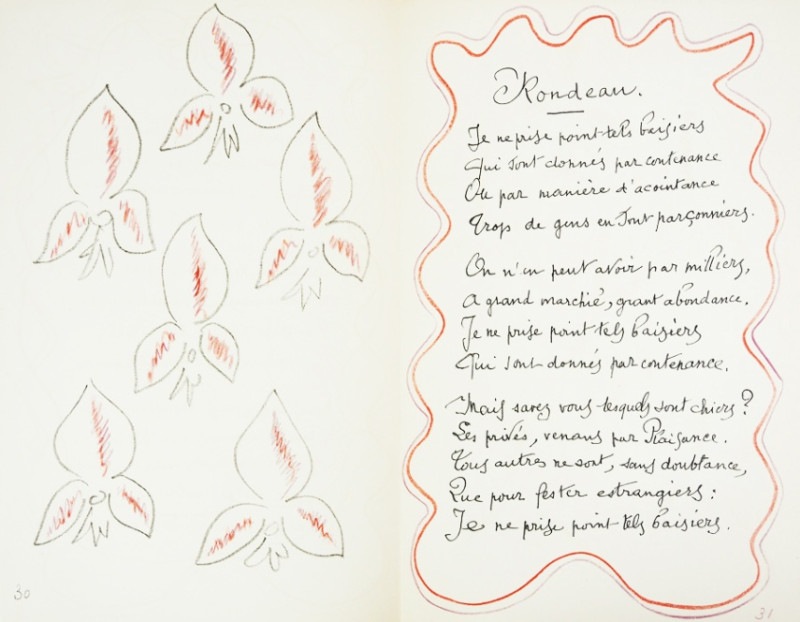 30
Rondeau.
Je ne prise point tels baisiers
Qui sont donnés par contenance
Ou par manière d'acointance
Trops de gens en sont parçonniers.
On n'en peut avoir par milliers,
A grand marchié, grant abondance.
Je ne prise point tels baisiers
Qui sont donnés par contenance.
Mais savez vous lesquels sont chiers?
Les privés, venans par Plaisance.
Tous autres ne sont, sans doubtance,
Que pour fester estrangiers:
Je ne prise point tels baisiers.
31